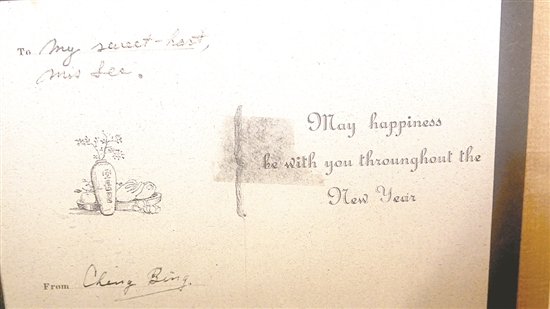 To My sweet-hart,
Miss Lee.
May happiness
be with you throunghout the
New Year
From Cheng Bing.